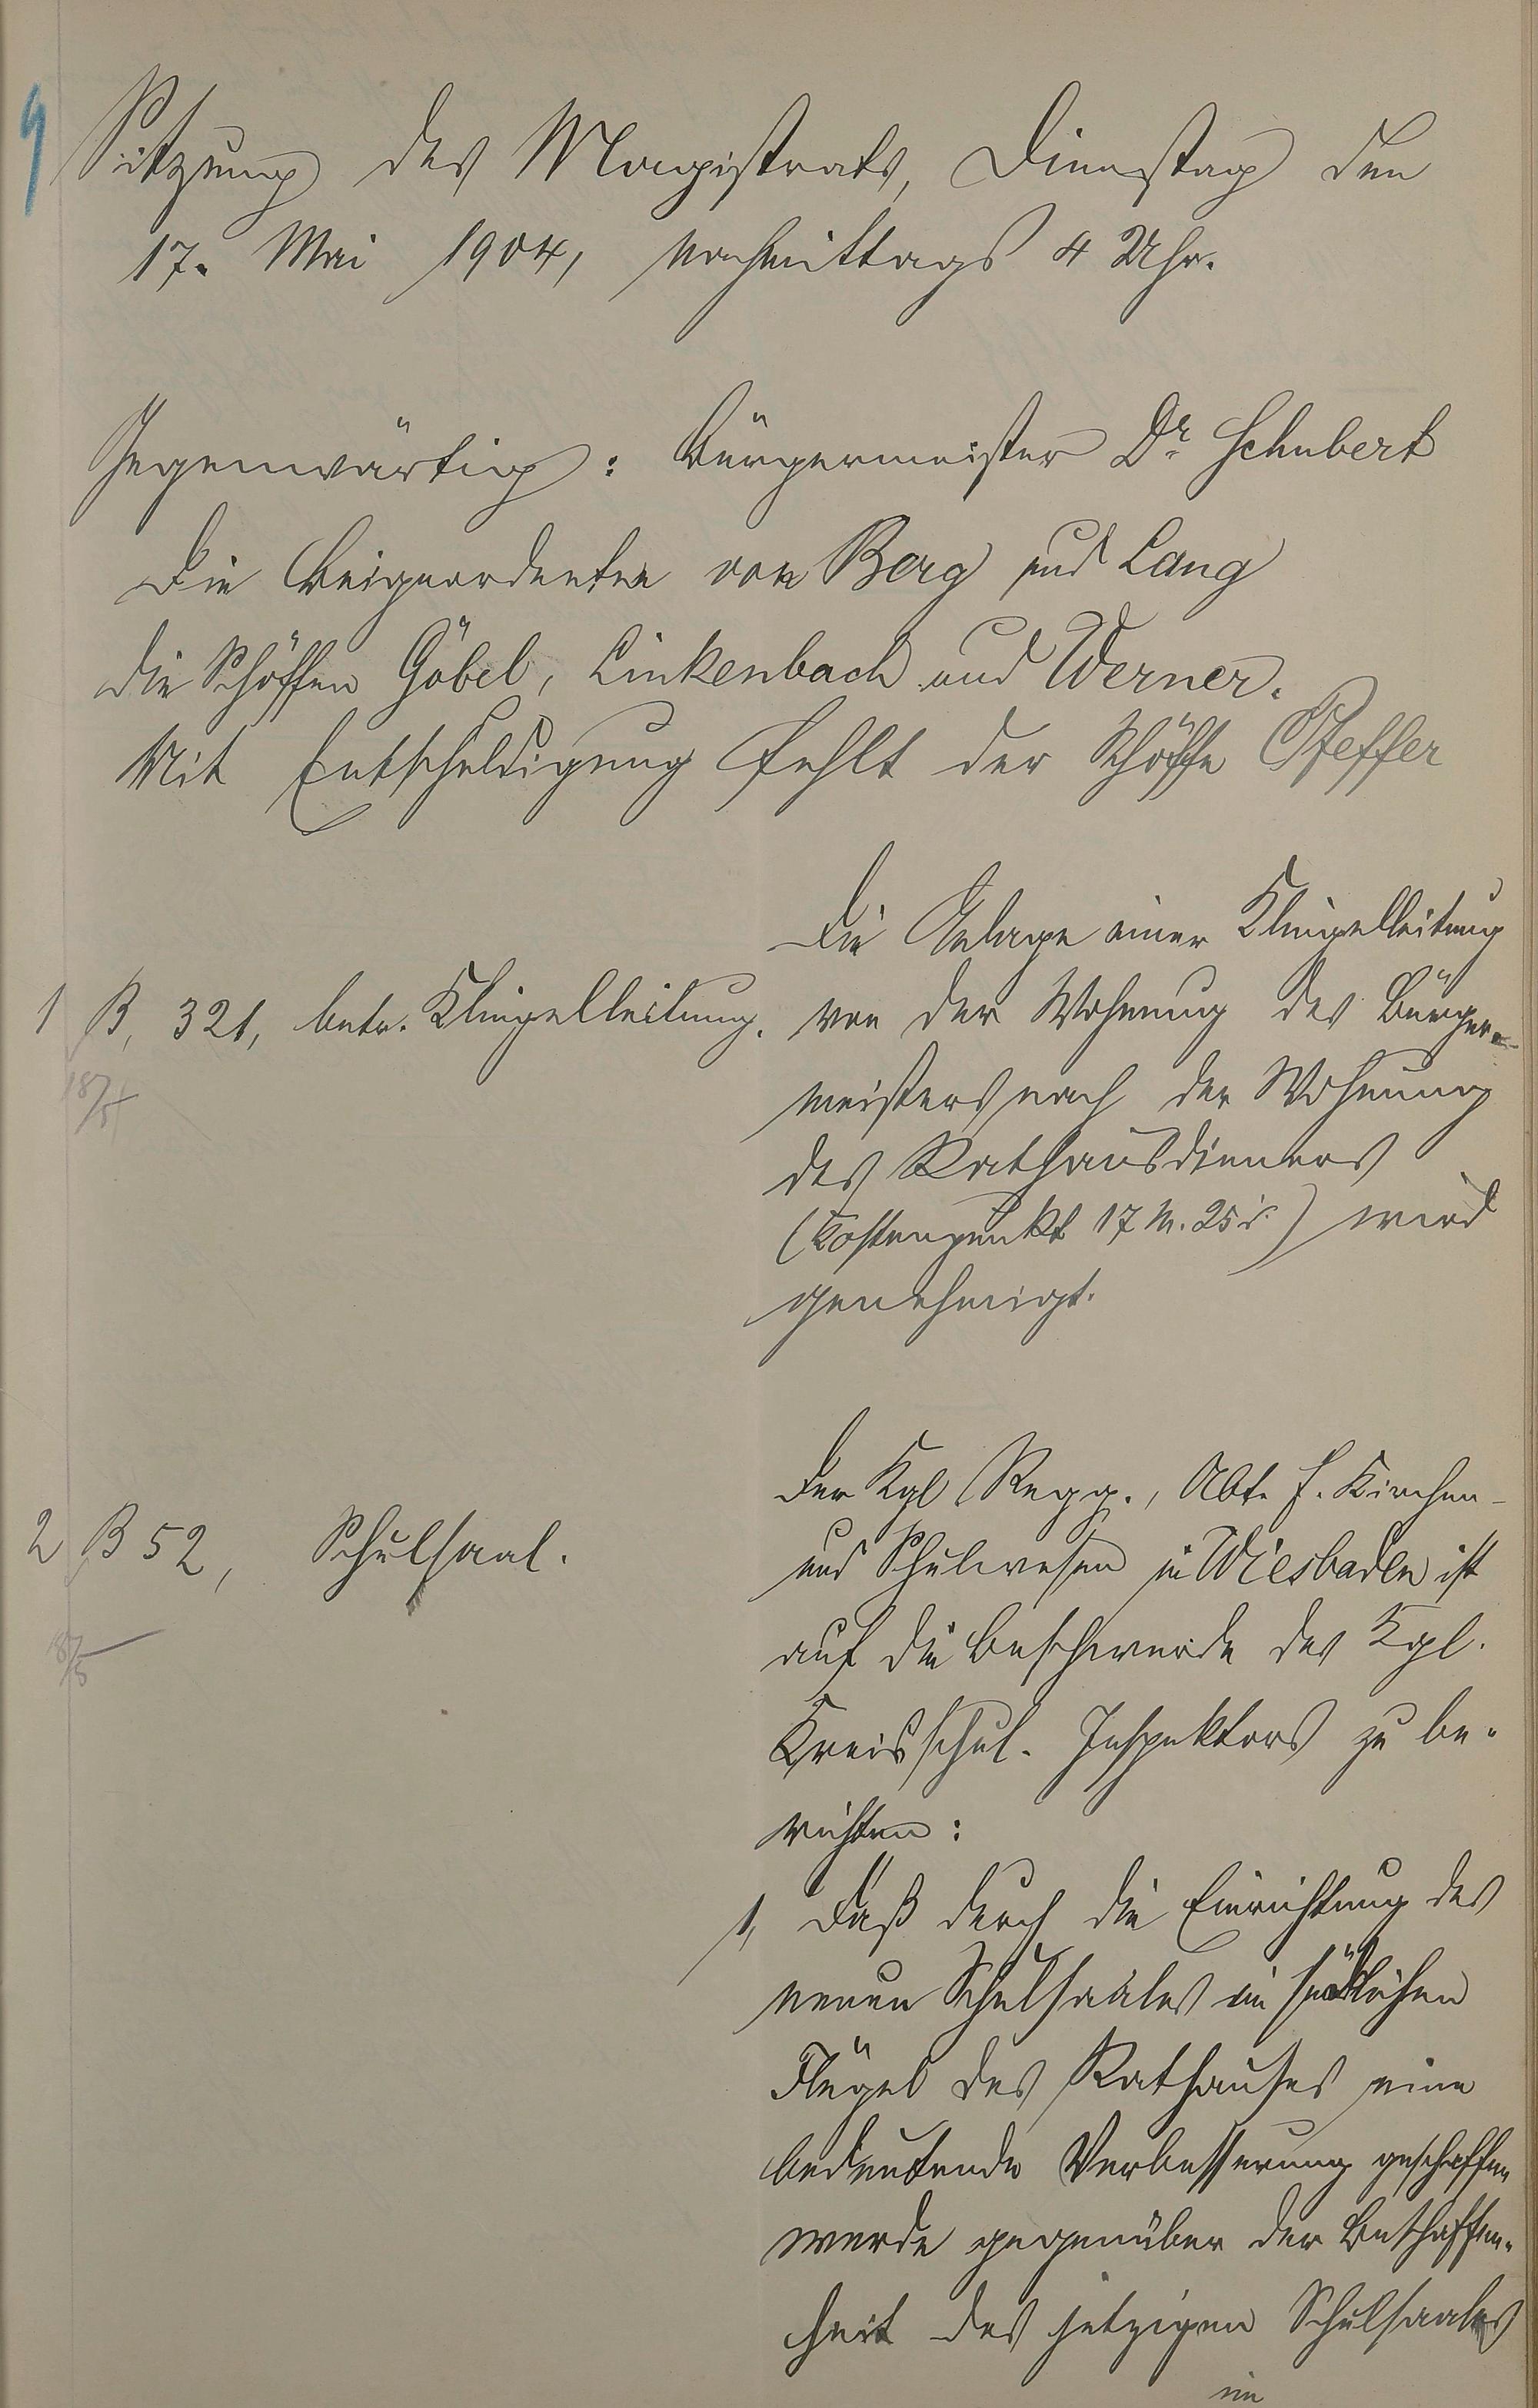 9
Sitzung des Magistrats, Dienstag den
17. Mai 1904, nachmittags 4 Uhr.
Gegenwärtig: Bürgermeister Dr. Schubert
Die Beigeordneten von Berg und Lang
die Schöffen Göbel, Linkenbach und Werner.
Mit Entschuldigung fehlt der Schöffe Pfeffer
1 B, 321, betr. Klingelleitung.
18/5
Die Anlage einer Klingelleitung
von der Wohnung des Bürger-
meisters nach der Wohnung
des Rathausdieners
(Kostenpunkt 17 M. 25 ) wird
genehmigt.
2 B 52, Schulsaal.
18/5
Der Kgl Regg., Abt. f. Kirchen-
und Schulwesen in Wiesbaden ist
auf die Beschwerde des Kgl.
Kreisschul-Inspektors zu be-
richten:
1, Daß durch die Einrichtung des
neuen Schulsaales im südlichen
Flügel des Rathauses eine
bedeutende Verbesserung geschaffen
werde gegenüber der Beschaffen-
heit des jetzigen Schulsaales
im